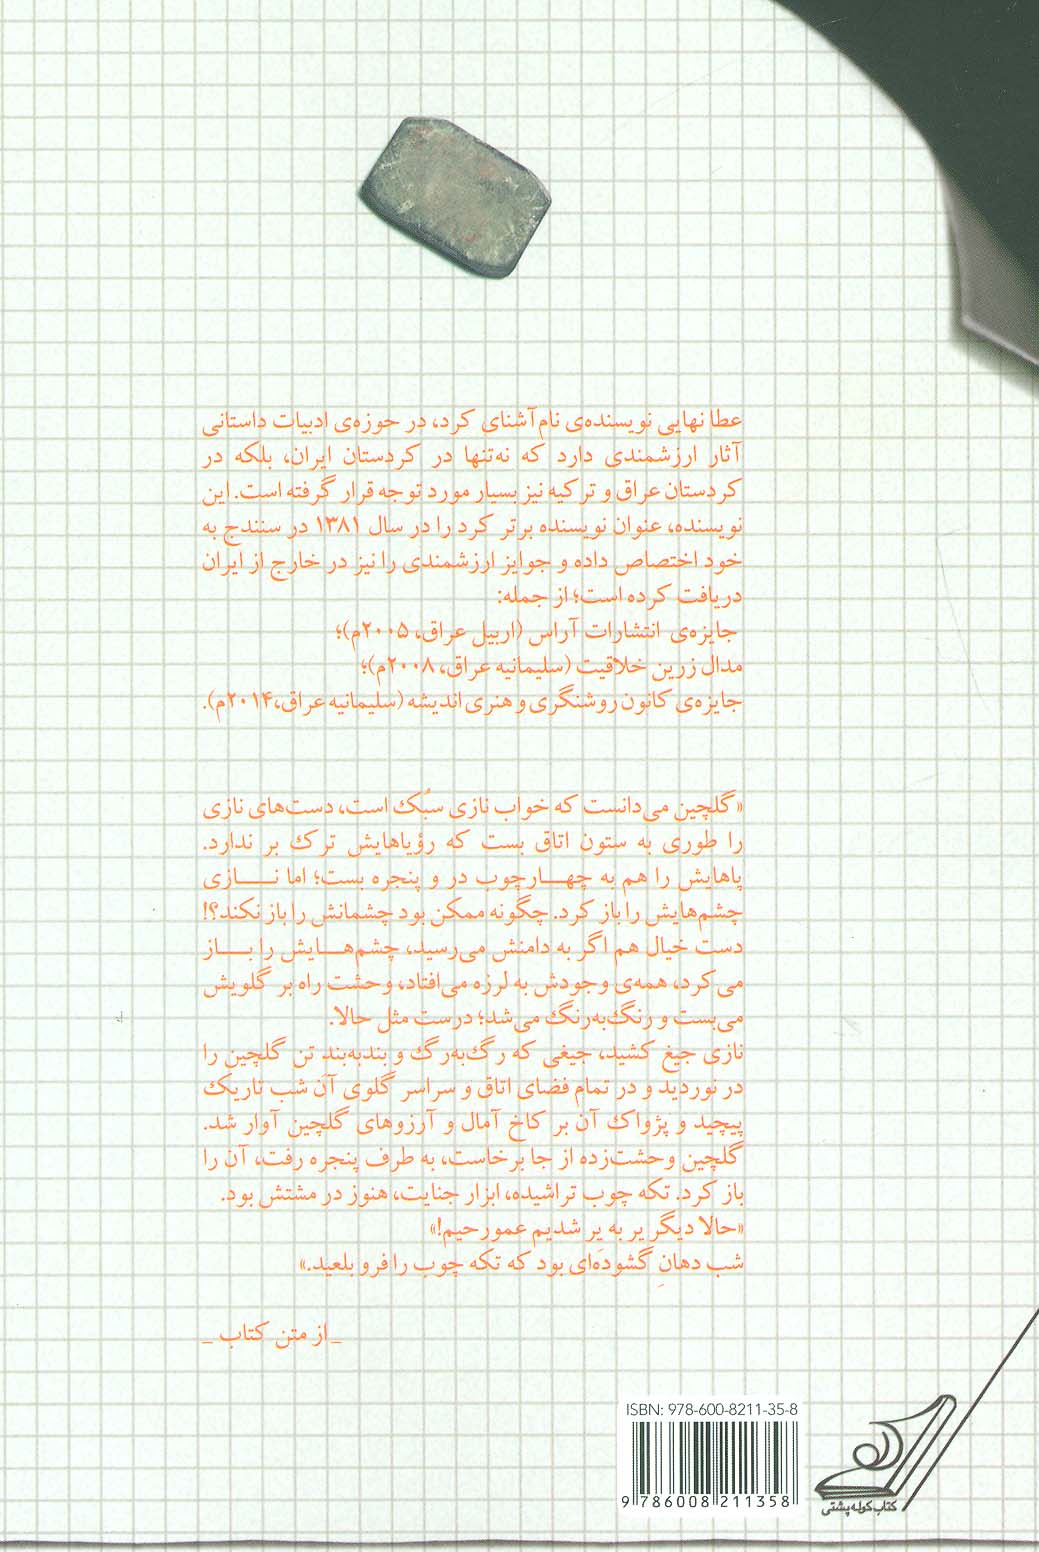 عطا نهایی نویسنده‌ی نام‌آشنای کرد، در حوزه‌ی ادبیات داستانی
آثار ارزشمندی دارد که نه‌تنها در کردستان ایران، بلکه در
کردستان عراق و ترکیه نیز بسیار مورد توجه قرار گرفته است. این
نویسنده، عنوان نویسنده برتر کرد را در سال ۱۳۸۱ در سنندج به
خود اختصاص داده و جوایز ارزشمندی را نیز در خارج از ایران
دریافت کرده است؛ از جمله:
جایزه‌ی انتشارات آراس (اربیل عراق، ۲۰۰۵م)؛
مدال زرین خلاقیت (سلیمانیه عراق، ۲۰۰۸م)؛
جایزه‌ی کانون روشنگری و هنری اندیشه (سلیمانیه عراق، ۲۰۱۴م).
«گلچین می‌دانست که خواب نازی سبُک است، دست‌های نازی
را طوری به ستون اتاق بست که رؤیاهایش ترک بر ندارد.
پاهایش را هم به چهـارچوب در و پنجره بست؛ اما نـازی
چشم‌هایش را باز کرد. چگونه ممکن بود چشمانش را باز نکند؟!
دست خیال هم اگر به دامنش می‌رسید، چشم‌هـایش را بـاز
می‌کرد، همه‌ی وجودش به لرزه می‌افتاد، وحشت راه بر گلویش
می‌بست و رنگ‌به‌رنگ می‌شد؛ درست مثل حالا.
نازی جیغ کشید، جیغی که رگ‌به‌رگ و بندبه‌بندِ تن گلچین را
در نوردید و در تمام فضای اتاق و سراسر گلوی آن شب تاریک
پیچید و پژواک آن بر کاخ آمال و آرزوهای گلچین آوار شد.
گلچین وحشت‌زده از جا برخاست، به طرف پنجره رفت، آن را
باز کرد. تکه چوب تراشیده، ابزار جنایت، هنوز در مشتش بود.
«حالا دیگر یر به یر شدیم عمورحیم!»
شب دهانِ گشوده‌ای بود که تکه چوب را فرو بلعید.»
_ از متن کتاب _
ISBN: 978-600-8211-35-8
9 786008 211358
کتاب کوله‌پشتی